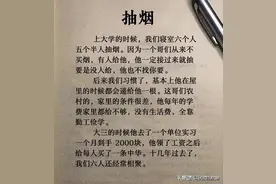 抽烟
上大学的时候，我们寝室六个人
五个半人抽烟。因为一个哥们从来不
买烟，有人给他，他一定接过来就抽
要是没人给，他也不找你要。
后来我们习惯了，基本上他在屋
里的时候都会递给他一根。这哥们农
村的，家里的条件很差，他每年的学
费家里都给不够，没有生活费，全靠
勤工俭学。
大三的时候他去了一个单位实习
一个月到手2000块，他领了工资之后
给每人买了一条中华。十几年过去了，
我们六人还经常相聚。